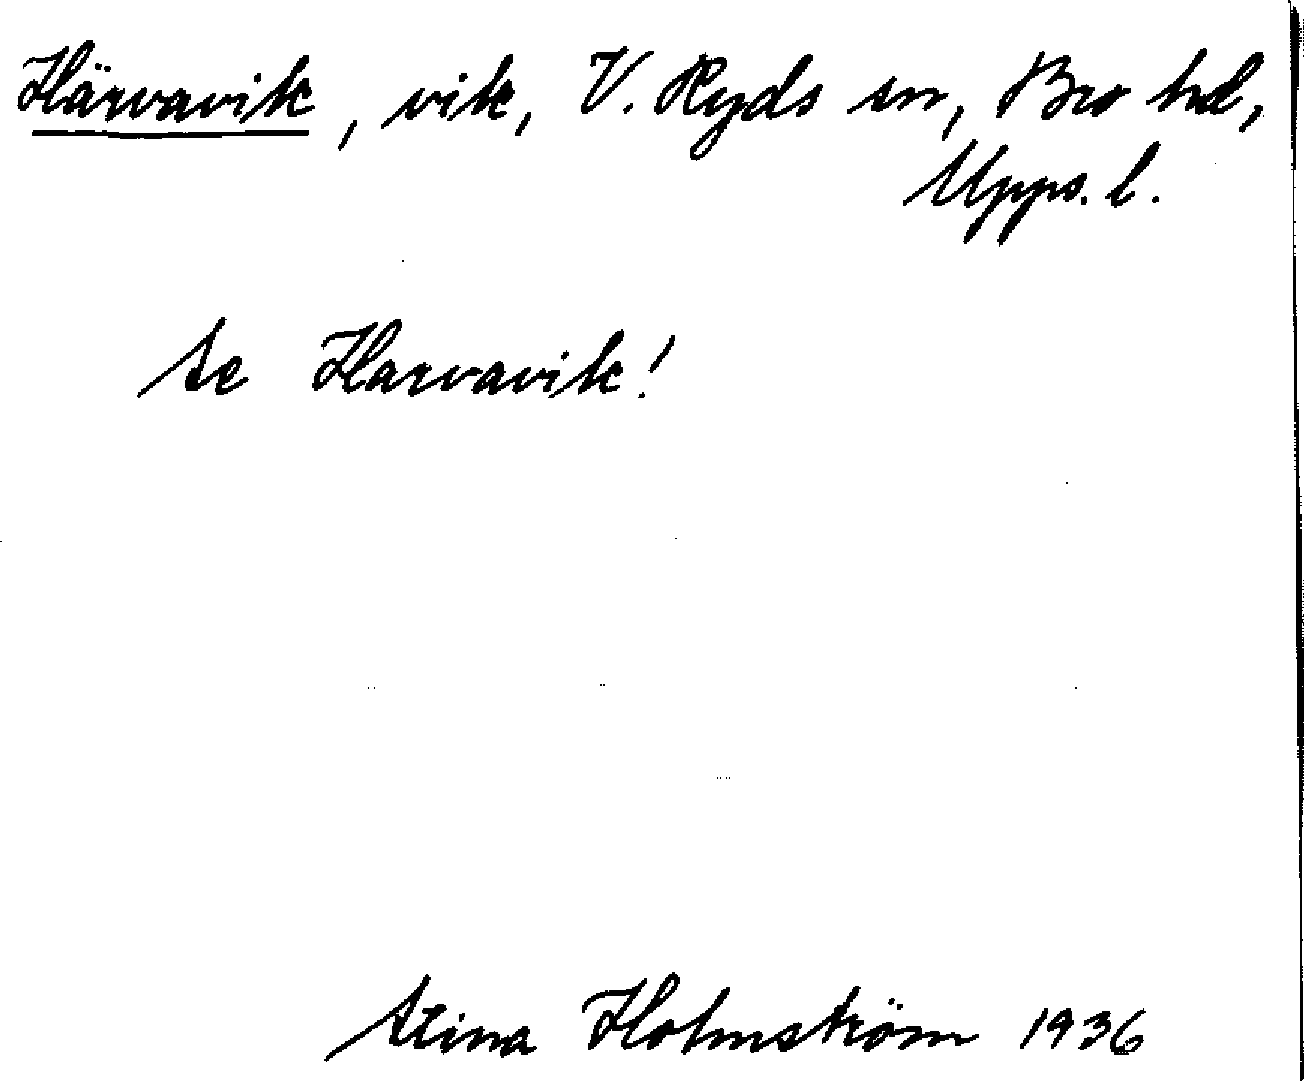 Härvavik, vik, V. Ryds sn, Bro hd,
Upps. l.
Se Harvavik!
Stina Holmström 1936